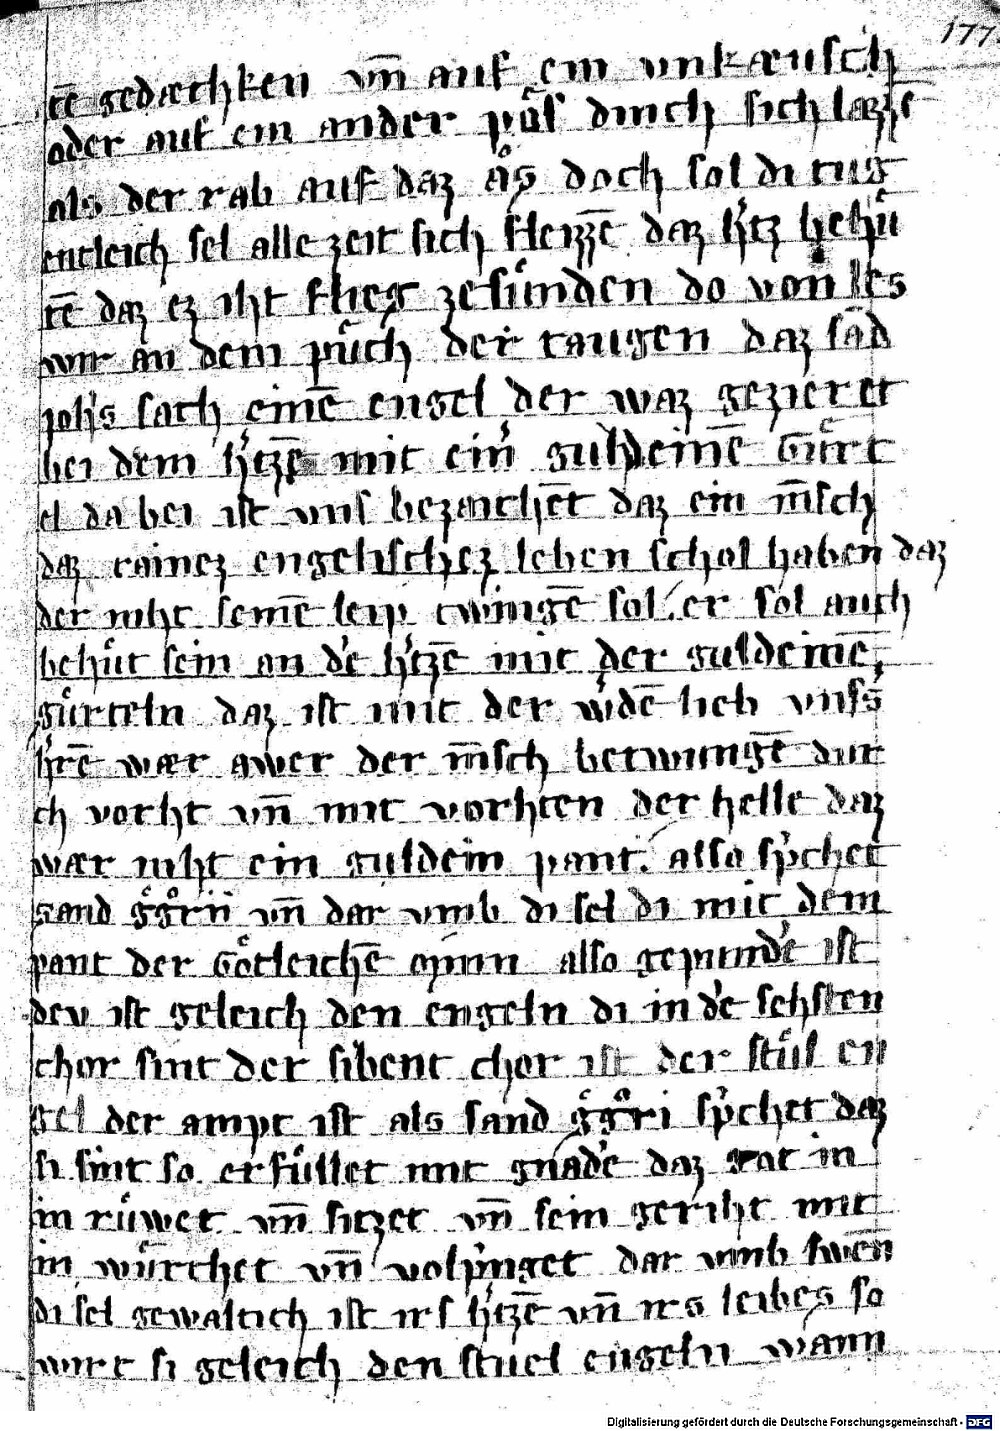 177
tē gedæchken vn̄ auf ein vnkæusch
oder auf ein ander pöͤs dinch sich læzzē
als der rab auf daz aͦs doch sol di tug
entleich sel alle zeit sich fleizzē daz h'tz behuͤ
tē daz ez iht flieg ze suͤnden do von les
wir an dem puͤch der taugen daz sād
johs sach einē engel der waz gezieret
bei dem h'tzē mit ein' guldeinē Guͤrt
el da bei ist vns bezaichēt daz ein m̄sch
daz rainez engelischez leben schol haben daz
der niht seinē leip twingē sol. er sol auch
behuͤt sein an d'e h'tzē mit der guldeinē
guͤrteln daz ist mit der w'dē lieb vnss
h'rē wær awer der m̄sch betwungē dur
ch vorht vn̄ mit vorhten der helle daz
wær niht ein guldein pant. also sp'chet
sand g̊g̊rii vn̄ dar vmb di sel di mit dem
pant der Goͤtleichē minn also gepund'e ist
dev ist geleich den engeln di in d'e sehsten
chor sint der sibent chor ist der stuͤl en
gel der ampt ist als sand g̊g̊ri sp'chet daz
si sint so erfuͤllet mit gnad'e daz got in
in ruͤwet vn̄ sitzet vn̄ sein geriht mit
in wuͤrchet vn̄ volp'nget dar vmb swēn
di sel gewaltich ist irs h'tzē vn̄ irs leibes so
wirt si geleich den stuel engeln wann
Digitalisierung gefördert durch die Deutsche Forschungsgemeinschaft - DFG